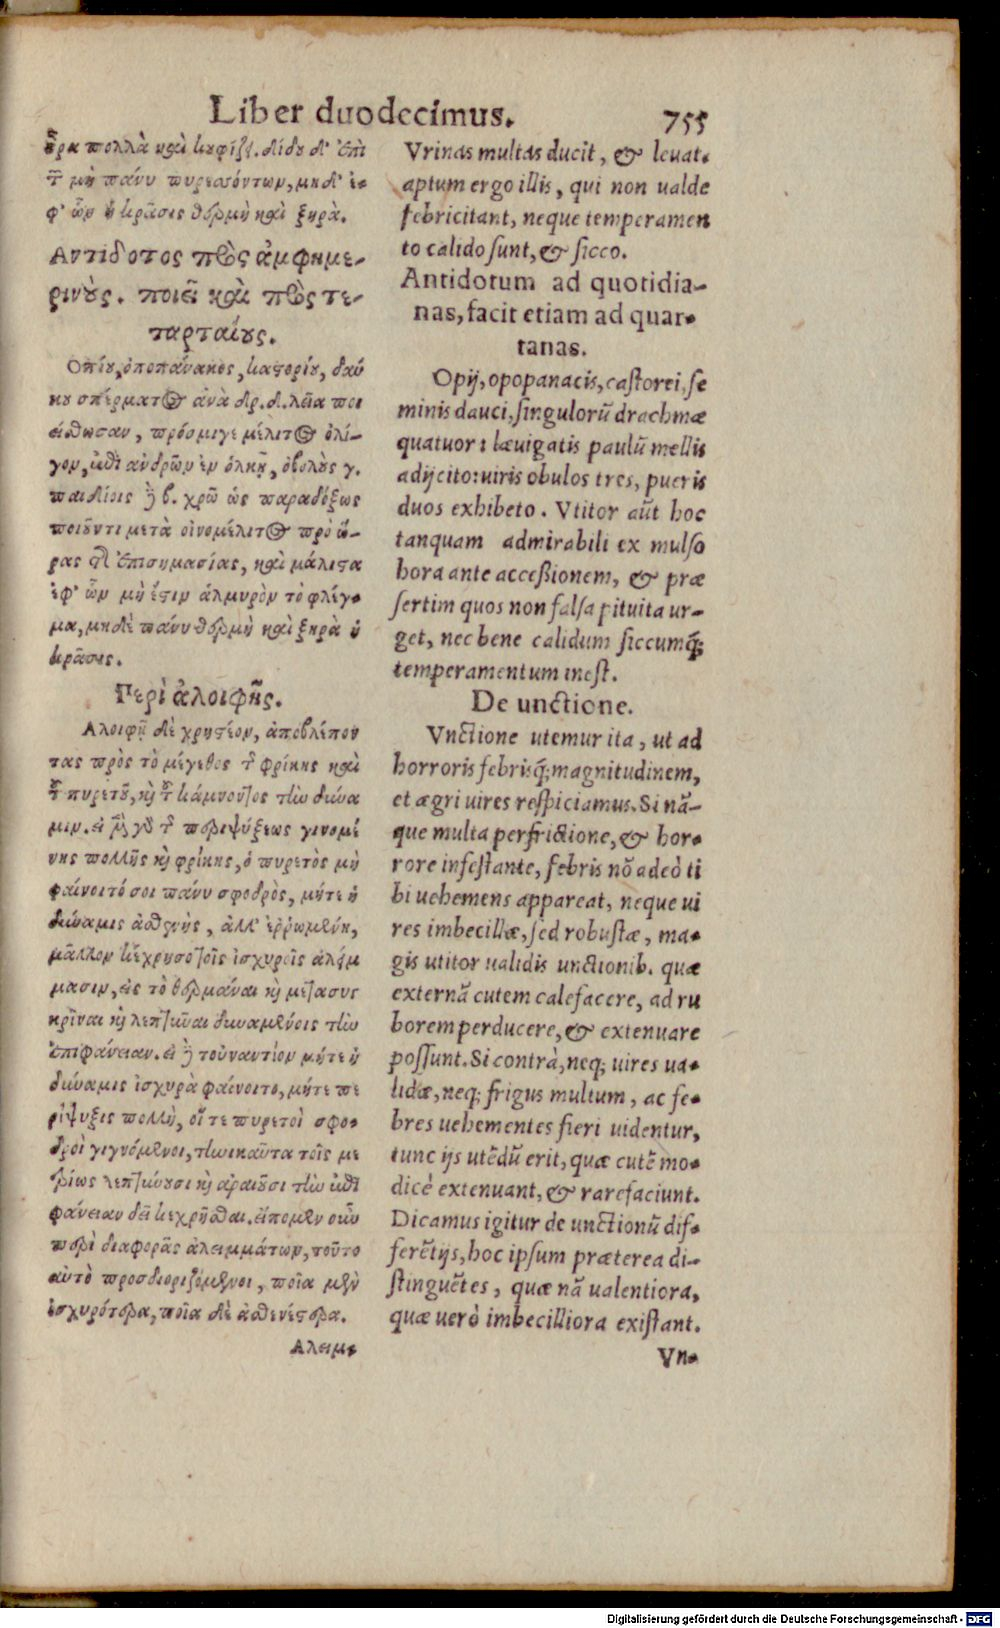 Liber duodecimus.
755
οὖρα πολλὰ καὶ κουφίζει. δίδου δ' ἐπὶ
τῶν μὴ πάνυ πυρεσσόντων, μηδ' ἐ-
φ' ὧν ἡ κρᾶσις θερμὴ καὶ ξηρά.
Αντίδοτος πρὸς ἀμφημε-
ρινοὺς. ποιεῖ καὶ πρὸς τε-
ταρταίους.
Οπίου, ὀποπάνακος, καστορίου, δαύ
κου σπέρματος ἀνὰ δρ. δ. λεῖα ποι
είσθωσαν, πρόσμιγε μέλιτος ὀλί-
γον, ἐπὶ ἀνδρῶν ἐν ὁλκῇ, ὀβολοὺς γ.
παιδίοις δὲ β. χρῶ ὡς παραδόξως
ποιοῦντι μετὰ οἰνομέλιτος πρὸ ὥ-
ρας τῆς ἐπισημασίας, καὶ μάλιστα
ἐφ' ὧν μὴ ἔστιν ἁλμυρὸν τὸ φλέγ-
μα, μηδὲ πάνυ θερμὴ καὶ ξηρὰ ἡ
κρᾶσις.
Περὶ ἀλοιφῆς.
Αλοιφῇ δὲ χρηστέον, ἀποβλέπον
τας πρὸς τὸ μέγεθος τῆς φρίκης καὶ
τοῦ πυρετοῦ, καὶ τοῦ κάμνοντος τὴν δύνα
μιν. εἰ μὲν γὰρ τῆς περιψύξεως γινομέ
νης πολλῆς καὶ φρίκης, ὁ πυρετὸς μὴ
φαίνοιτό σοι πάνυ σφοδρὸς, μήτε ἡ
δύναμις ἀσθενὴς, ἀλλ' ἐῤῥωμένη,
μᾶλλον κέχρησο τοῖς ἰσχυροῖς ἀλείμ
μασιν, εἰς τὸ θερμάναι καὶ μετασυγ
κρῖναι καὶ λεπτῦναι δυναμένοις τὴν
ἐπιφάνειαν. εἰ δὲ τοὐναντίον μήτε ἡ
δύναμις ἰσχυρὰ φαίνοιτο, μήτε πε
ρίψυξις πολλὴ, οἵ τε πυρετοὶ σφο-
δροὶ γιγνόμενοι, τηνικαῦτα τοῖς με
τρίως λεπτύνουσι καὶ ἀραιοῦσι τὴν ἐπι
φάνειαν δεῖ κεχρῆσθαι. εἴπομεν οὖν
περὶ διαφορᾶς ἀλειμμάτων, τοῦτο
αὐτὸ προσδιοριζόμενοι, ποῖα μὲν
ἰσχυρότερα, ποῖα δὲ ἀσθενέστερα.
Αλειμ-
Vrinas multas ducit, & leuat.
aptum ergo illis, qui non ualde
febricitant, neque temperamen
to calido sunt, & sicco.
Antidotum ad quotidia-
nas, facit etiam ad quar-
tanas.
Opij, opopanacis, castorei, se
minis dauci, singulorũ drachmæ
quatuor: læuigatis paulũ mellis
adijcito: uiris obulos tres, pueris
duos exhibeto. Vtitor aũt hoc
tanquam admirabili ex mulso
hora ante accessionem, & præ
sertim quos non falsa pituita ur-
get, nec bene calidum siccumq́;
temperamentum inest.
De unctione.
Vnctione utemur ita, ut ad
horroris febrisq́; magnitudinem,
et ægri uires respiciamus. Si nã-
que multa perfrictione, & hor-
rore infestante, febris nõ adeò ti
bi uehemens appareat, neque ui
res imbecillæ, sed robustæ, ma-
gis utitor ualidis unctionib. quæ
externã cutem calefacere, ad ru
borem perducere, & extenuare
possunt. Si contrà, neq; uires ua-
lidæ, neq; frigus multum, ac fe-
bres uehementes fieri uidentur,
tunc ijs utẽdũ erit, quæ cutẽ mo-
dicè extenuant, & rarefaciunt.
Dicamus igitur de unctionũ dif-
ferẽtijs, hoc ipsum præterea di-
stinguẽtes, quæ nã ualentiora,
quæ uerò imbecilliora existant.
Vn-
Digitalisierung gefördert durch die Deutsche Forschungsgemeinschaft - DFG